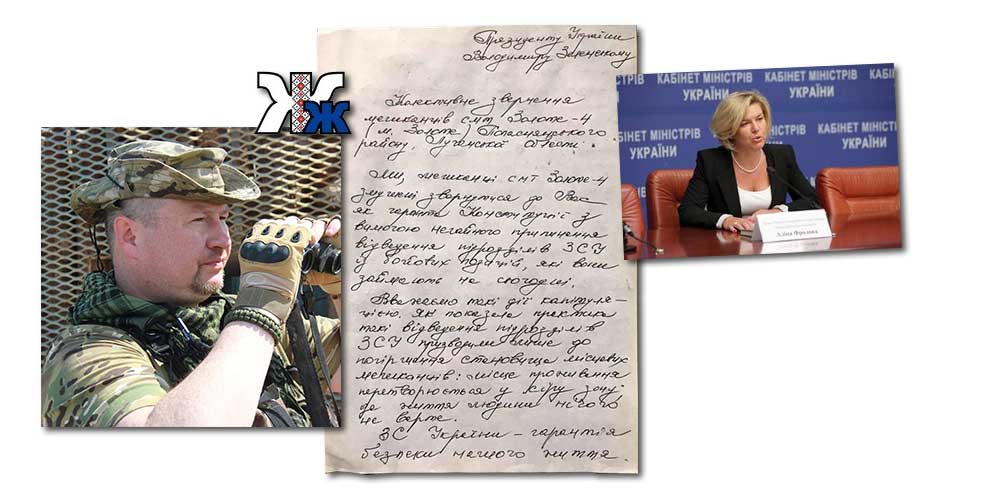 Президенту України
Володимиру Зеленському
Колективне звернення
мешканців смт Золоте-4
(м. Золоте) Попаснянського
району, Луганської області.
Ми, мешканці смт Золоте-4
змушені звернутися до Вас
як гаранта Конституції з
вимогою негайного припинення
відведення підрозділів ЗСУ
з бойових позицій, які вони
займають на сьогодні.
Вважаємо такі дії капітуля-
цією. Як показала практика
такі відведення підрозділів
ЗСУ призводили лише до
погіршення становища місцевих
мешканців: місце проживання
перетворюється у сіру зону,
де життя людини нічого
не варте.
ЗС України – гарантія
безпеки нашого життя.
ЖЖ
КАБІНЕТ МІНІСТРІВ
УКРАЇНИ
КАБІНЕТ МІНІСТРІВ
УКРАЇНИ
КАБІНЕТ
КАБІНЕТ МІНІСТРІВ
УКРАЇНИ
Аліна Фролова